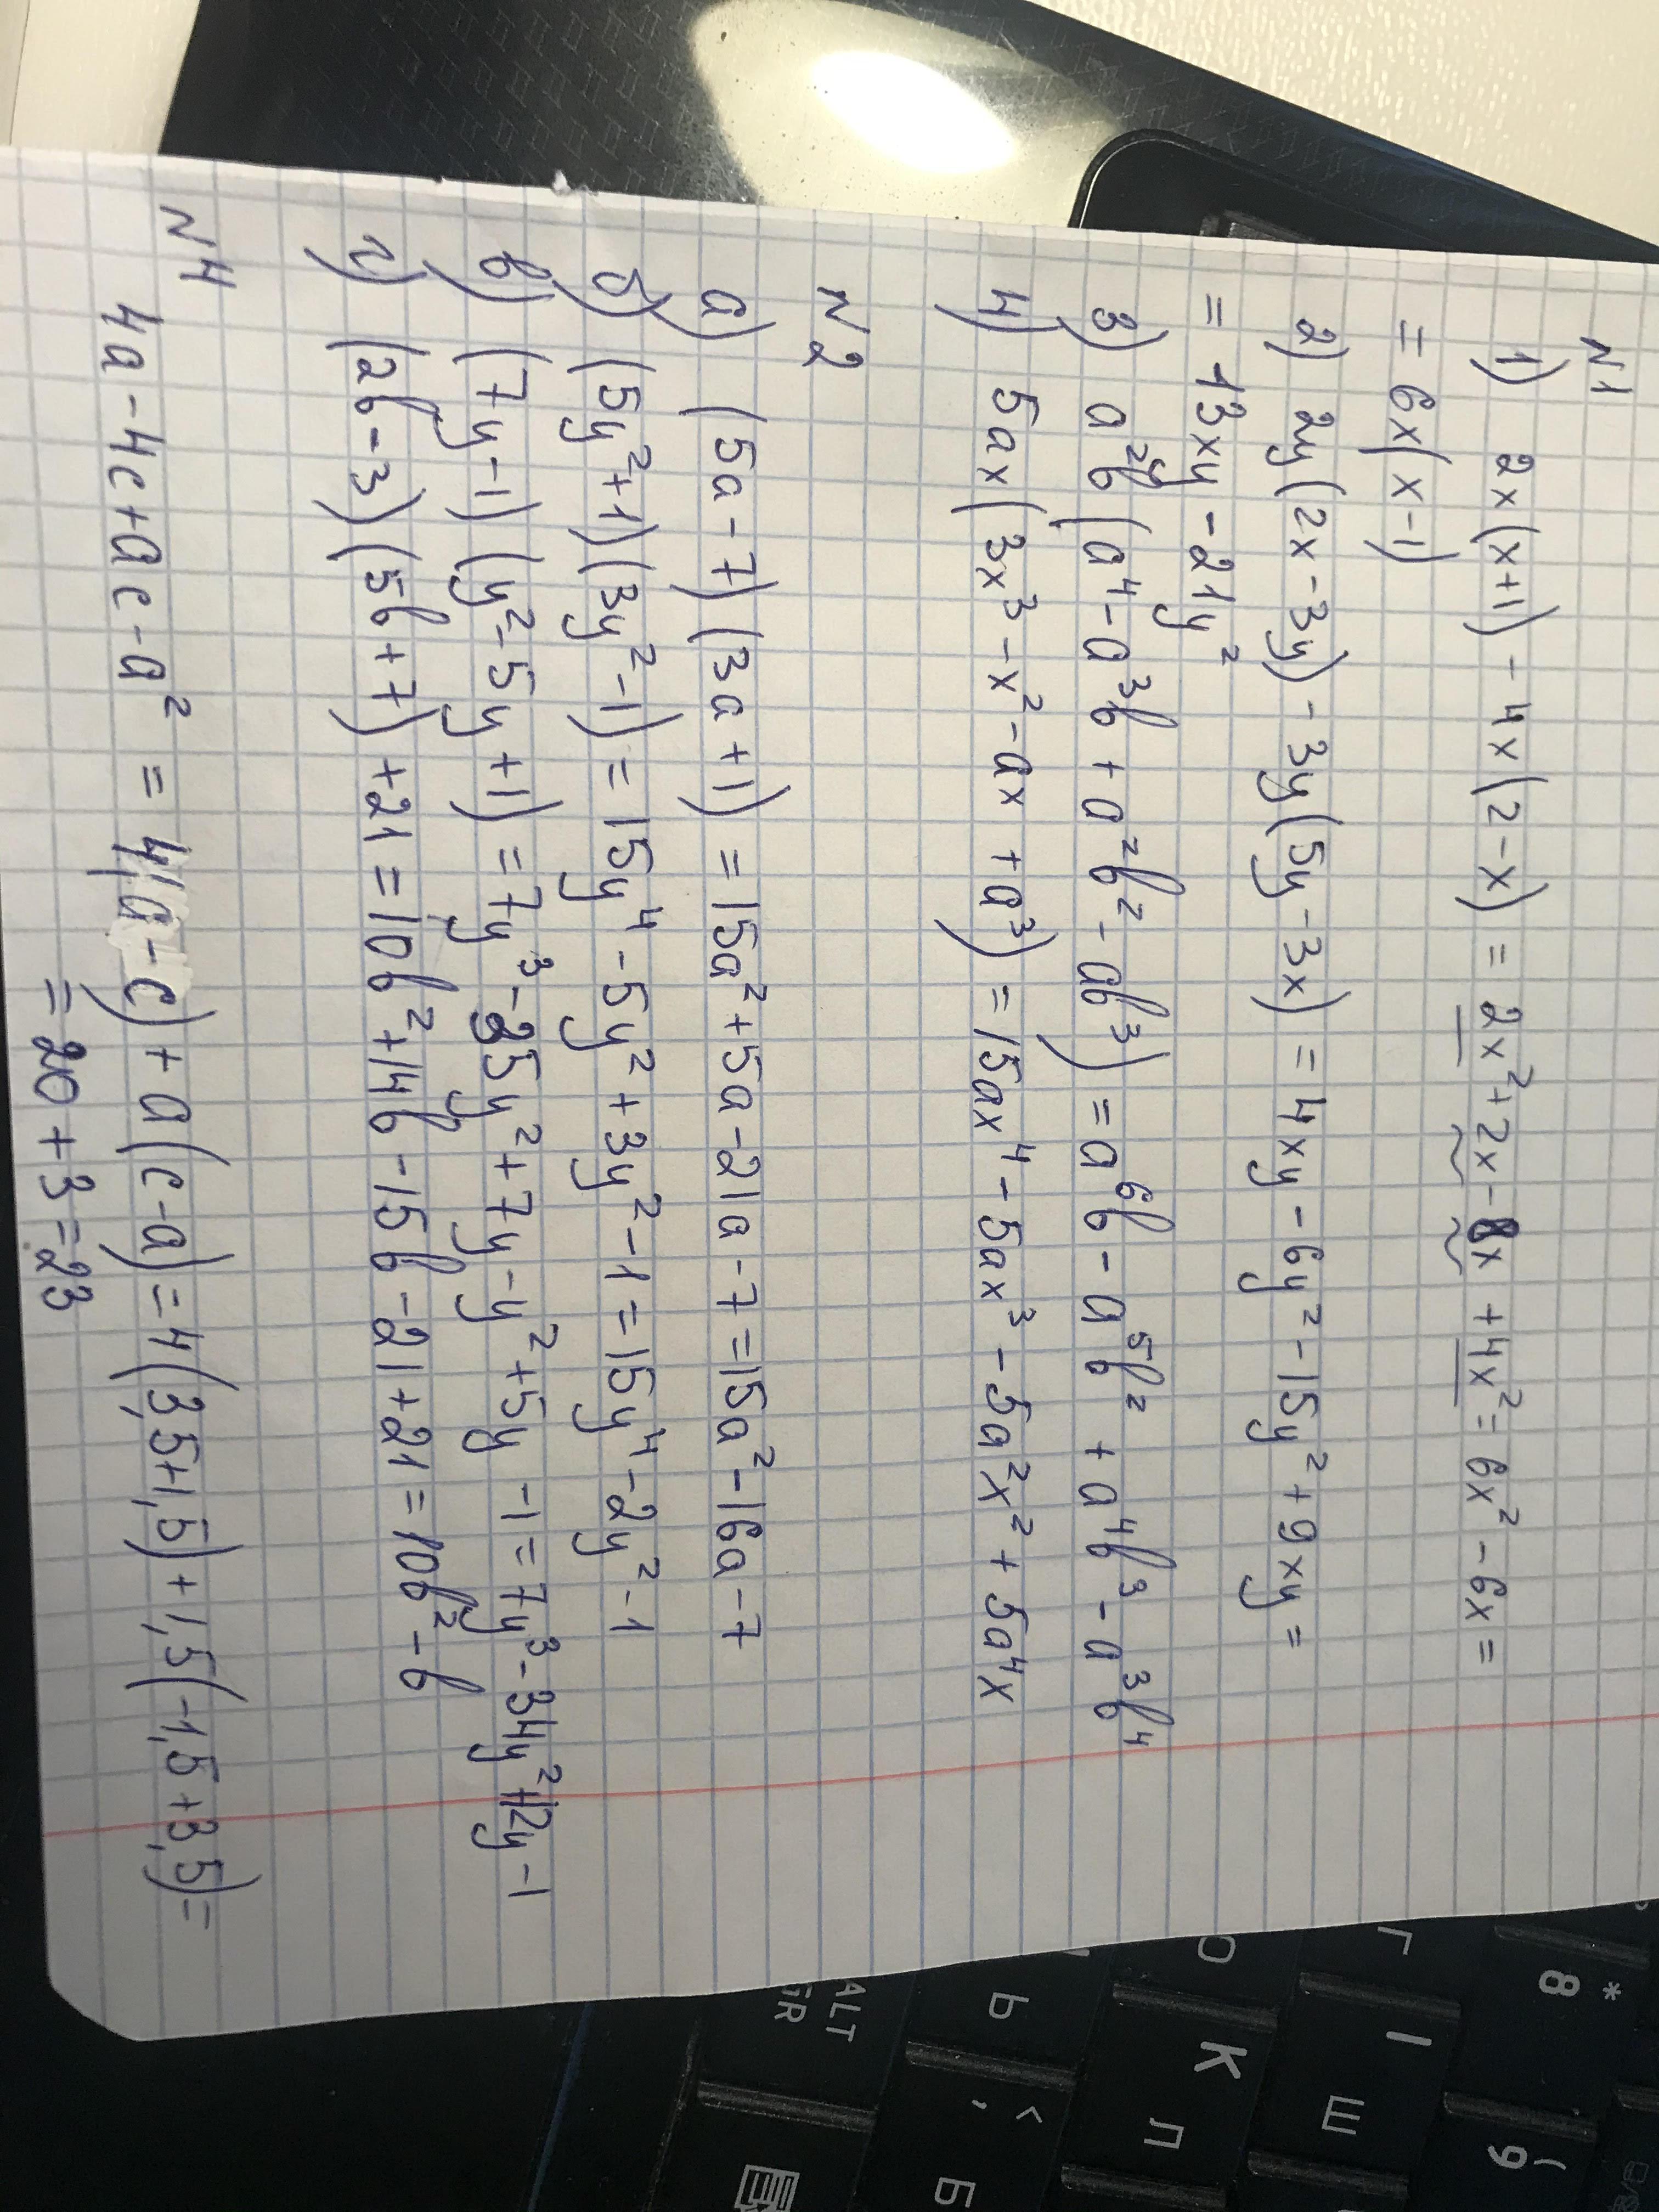 N1
1) 2x(x+1) - 4x(2-x) = 2x²+2x-8x+4x² = 6x²-6x =
= 6x(x-1)
2) 2y(2x-3y) - 3y(5y-3x) = 4xy - 6y² - 15y² + 9xy =
= 13xy - 21y²
3) a²b(a⁴-a³b + a²b² - ab³) = a⁶b - a⁵b² + a⁴b³ - a³b⁴
4) 5ax(3x³-x²-ax+a³) = 15ax⁴ - 5ax³ - 5a²x² + 5a⁴x
N2
а) (5a-7)(3a+1) = 15a²+5a-21a-7=15a²-16a-7
б) (5y²+1)(3y²-1) = 15y⁴-5y²+3y²-1=15y⁴-2y²-1
в) (7y-1)(y²-5y+1) = 7y³-35y²+7y-y²+5y-1=7y³-34y²+12y-1
г) (2b-3)(5b+7)+21=10b²+14b-15b-21+21=10b²-b
N4
4a-4c+ac-a² = 4(a-c)+a(c-a)=4(3,5+1,5)+1,5(-1,5+3,5)=
=20+3=23
* 8
( 9
Г
I Ш
О
К Л
Ь
< , Б
ALT
GR